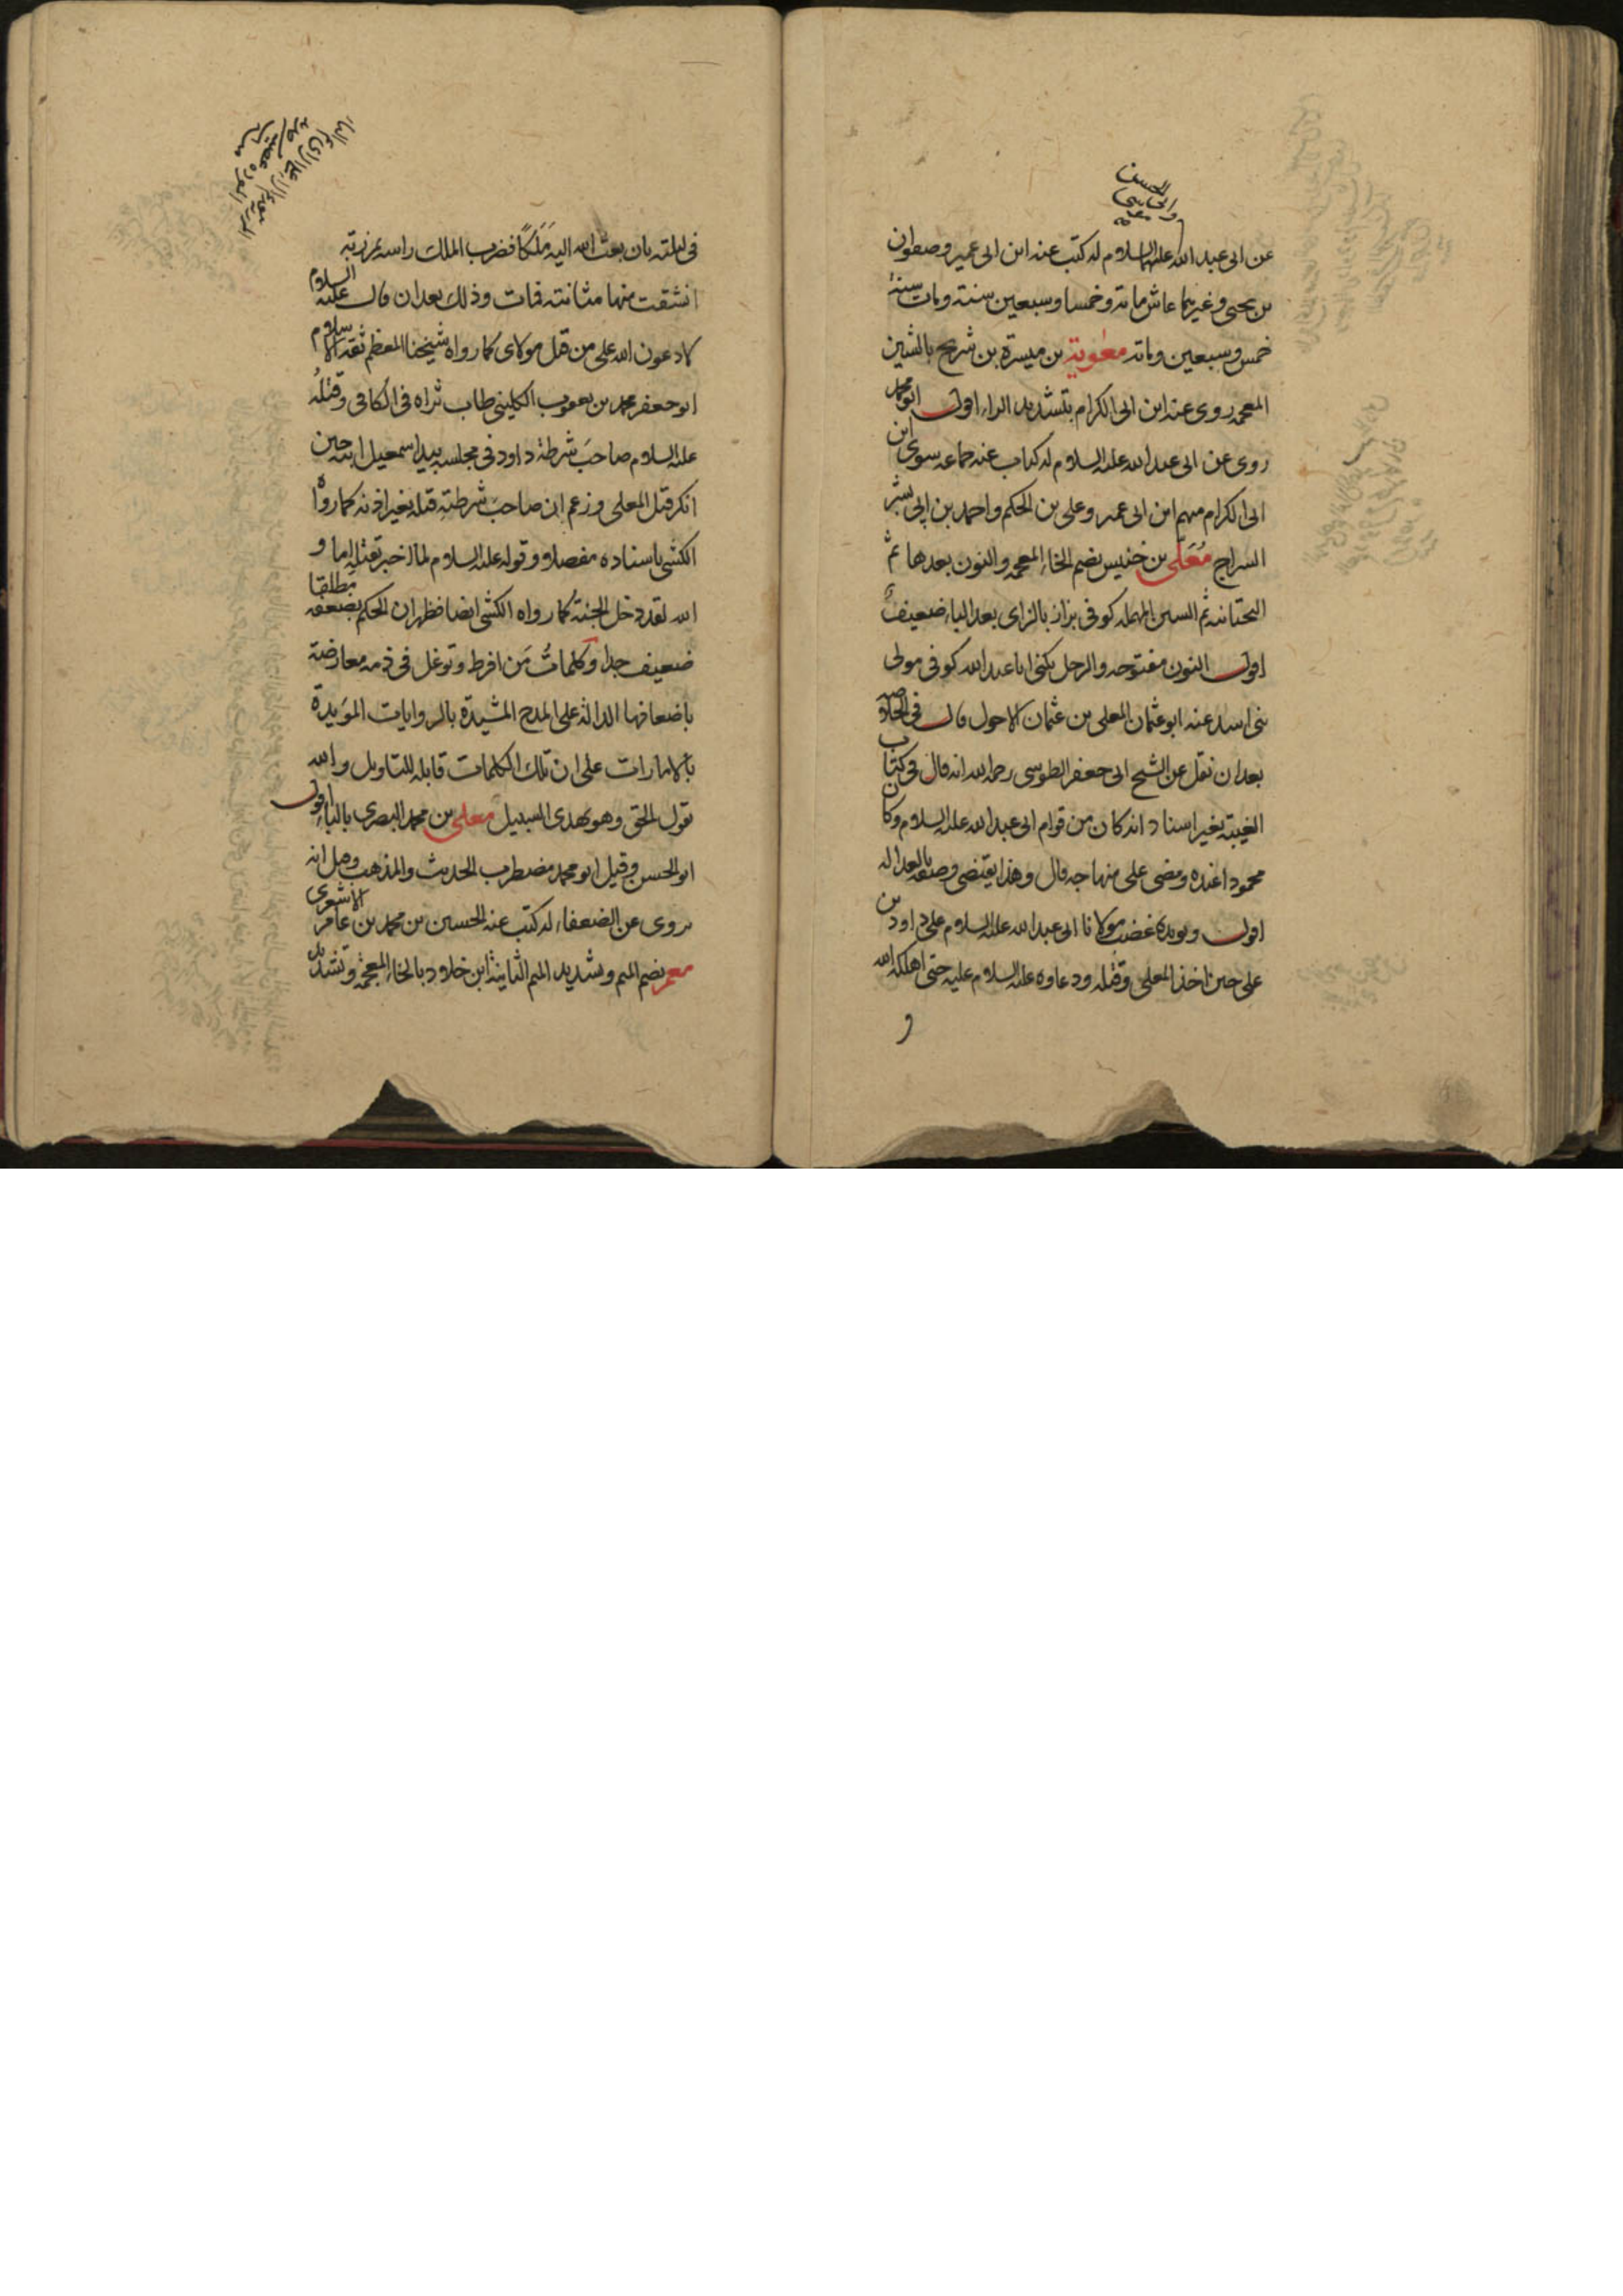 عن ابى عبد الله عليهما السلام له كتب عنه ابن ابى عمير وصفوان
بن يحيى وغيرهما عاش مائة وخمسا وسبعين سنة ومات سنة
خمس وسبعين ومائة معوية بن ميسرة بن شريح بالشين
المعجمه روى عنه ابن ابى الكرام بتشديد الراء اقول ابو محمد
روى عن ابى عبد الله عليه السلام له كتاب عنه جماعه سوى ابن
ابى الكرام منهم ابن ابى عمير وعلى بن الحكم واحمد بن ابى بشر
السراج مُعَلّى بن خنيس بضم الخاء المعجمه والنون بعدها ثم
التحتانيه ثم السين المهمله كوفى بزاز بالزاى بعد الباء ضعيف
اقول النون مفتوحه والرجل يكنى ابا عبد الله كوفى مولى
بنى اسد عنه ابو عثمان المعلى بن عثمان الاحول قال فى الخلاصه
بعد ان نقل عن الشيخ ابى جعفر الطوسى رحمه الله انه قال فى كتاب
الغيبة بغير اسناد انه كان من قوام ابى عبد الله عليه السلام وكان
محمودا عنده ومضى على منهاجه قال وهذا يقتضى وصفه بالعداله
اقول ويويده غضب مولانا ابى عبد الله عليه السلام على داود بن
على حين اخذ المعلى وقتله ودعاوه عليه السلام عليه حتى اهلكه الله
و
الحسن
فى ليلته بان بعث الله اليه مَلَكًا فضرب الملك راسه بمرزبة
انشقت منها مثانته فمات وذلك بعد ان قال عليه السلام
لادعون الله على من قتل مولاى كما رواه شيخنا المعظم ثقة الاسلام
ابو جعفر محمد بن يعقوب الكلينى طاب ثراه فى الكافى وقتلُه
عليه السلام صاحبَ شرطة داود فى مجلسه بيد اسمعيل ابنه حين
انكر قتل المعلى وزعم ان صاحب شرطته قتله بغير اذنه كما رواه
الكشى باسناده مفصلا وقوله عليه السلام لما اخبر بقتله اما و
الله لقد دخل الجنة كما رواه الكشى ايضا فظهر ان الحكم بضعفه مطلقا
ضعيف جدا وكلماتُ مَن افرط وتوغل فى ذمه معارضة
باضعافها الدالة على المدح المشيدة بالروايات المويدة
بالامارات على ان تلك الكلمات قابله للتاويل والله
يقول الحق وهو يهدى السبيل معلى بن محمد البصرى بالباء اقول
ابو الحسن وقيل ابو محمد مضطرب الحديث والمذهب وقيل انه
يروى عن الضعفاء له كتب عنه الحسين بن محمد بن عامر الاشعرى
معمر بضم الميم وتشديد الميم الثانية ابن خلاد بالخاء المعجمة وتشديد